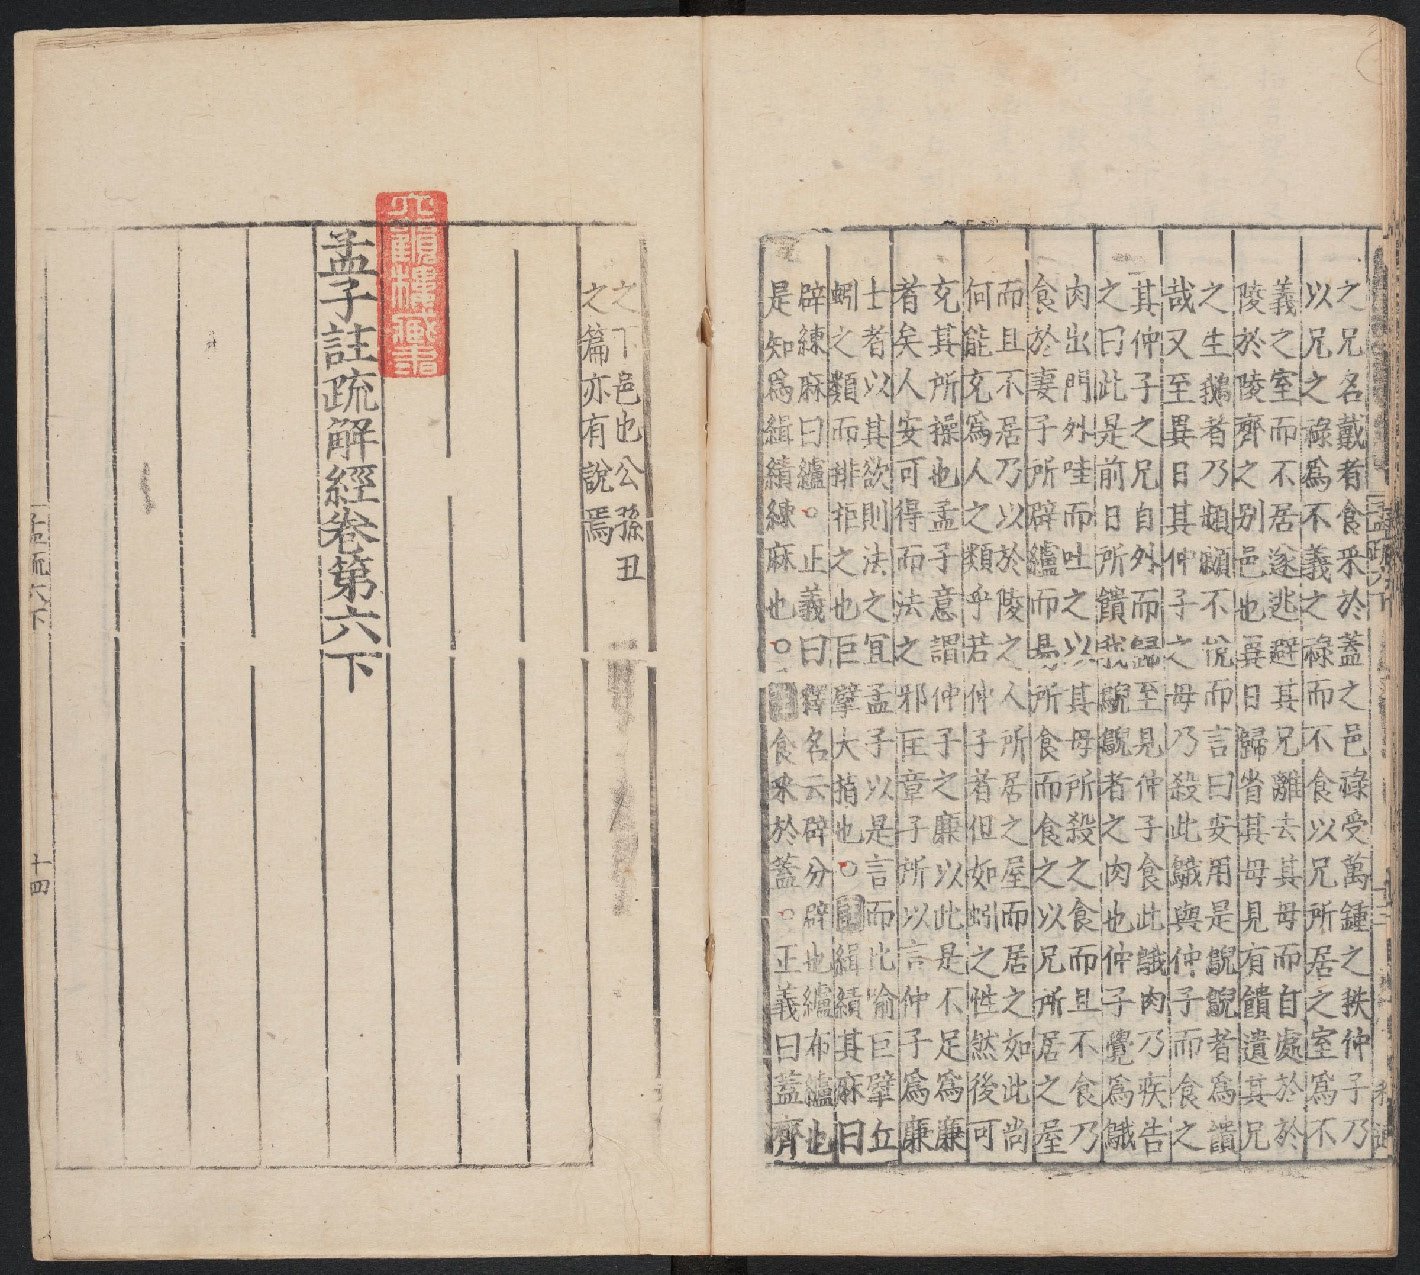 之兄名戴者食采於蓋之邑祿受萬鍾之秩仲子乃
以兄之祿爲不義之祿而不食以兄所居之室爲不
義之室而不居遂逃避其兄離去其母而自處於於
陵於陵齊之别邑也異日歸省其母見有饋遺其兄
之生鵝者乃頻顣不悅而言曰安用是鶃鶃者爲饋
哉又至異日其仲子之母乃殺此鵝與仲子而食之
其仲子之兄自外而歸至見仲子食此鵝肉乃疾告
之曰此是前日所饋我鶃鶃者之肉也仲子覺爲鵝
肉出門外哇而吐之以其母所殺之食而且不食乃
食於妻子所辟纑而易所食而食之以兄所居之屋
而且不居乃以於陵之人所居之屋而居之如此尚
何能充爲人之類乎若仲子者但如蚓之性然後可
充其所操也孟子意謂仲子之廉以此是不足爲廉
者矣人安可得而法之邪匡章子所以言仲子爲廉
士者以其欲則法之宜孟子以是言而比喻巨擘丘
蚓之類而排拒之也巨擘大指也○註緝績其麻曰
辟練麻曰纑○正義曰釋名云辟分辟也纑布纑也
是知爲緝績練麻也○註食采於蓋○正義曰蓋齊
之下邑也公孫丑
之篇亦有說焉
樓藏書
孟子註疏解經卷第六下
孟疏六下
十四